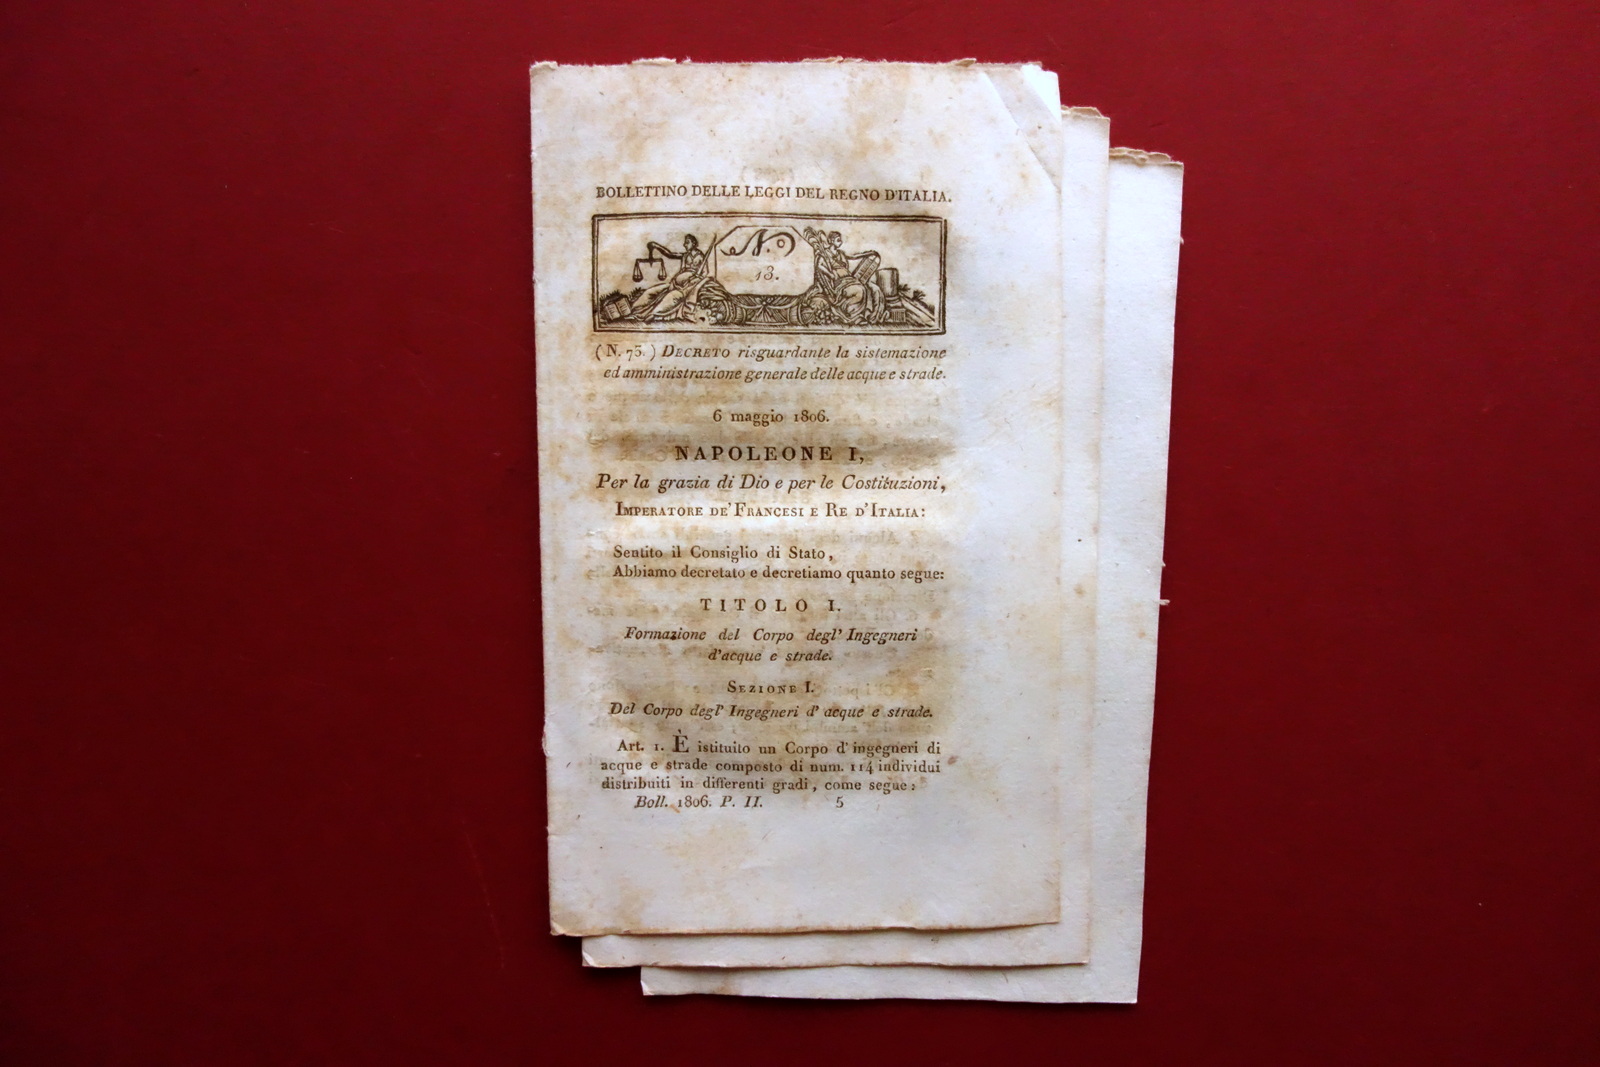 BOLLETTINO DELLE LEGGI DEL REGNO D'ITALIA.
N.o
13.
( N. 73. ) DECRETO risguardante la sistemazione
ed amministrazione generale delle acque e strade.
6 maggio 1806.
NAPOLEONE I,
Per la grazia di Dio e per le Costituzioni,
IMPERATORE DE' FRANCESI E RE D'ITALIA:
Sentito il Consiglio di Stato,
Abbiamo decretato e decretiamo quanto segue:
TITOLO I.
Formazione del Corpo degl' Ingegneri
d'acque e strade.
SEZIONE I.
Del Corpo degl' Ingegneri d' acque e strade.
Art. 1. È istituito un Corpo d' ingegneri di
acque e strade composto di num. 114 individui
distribuiti in differenti gradi, come segue:
Boll. 1806. P. II. 5